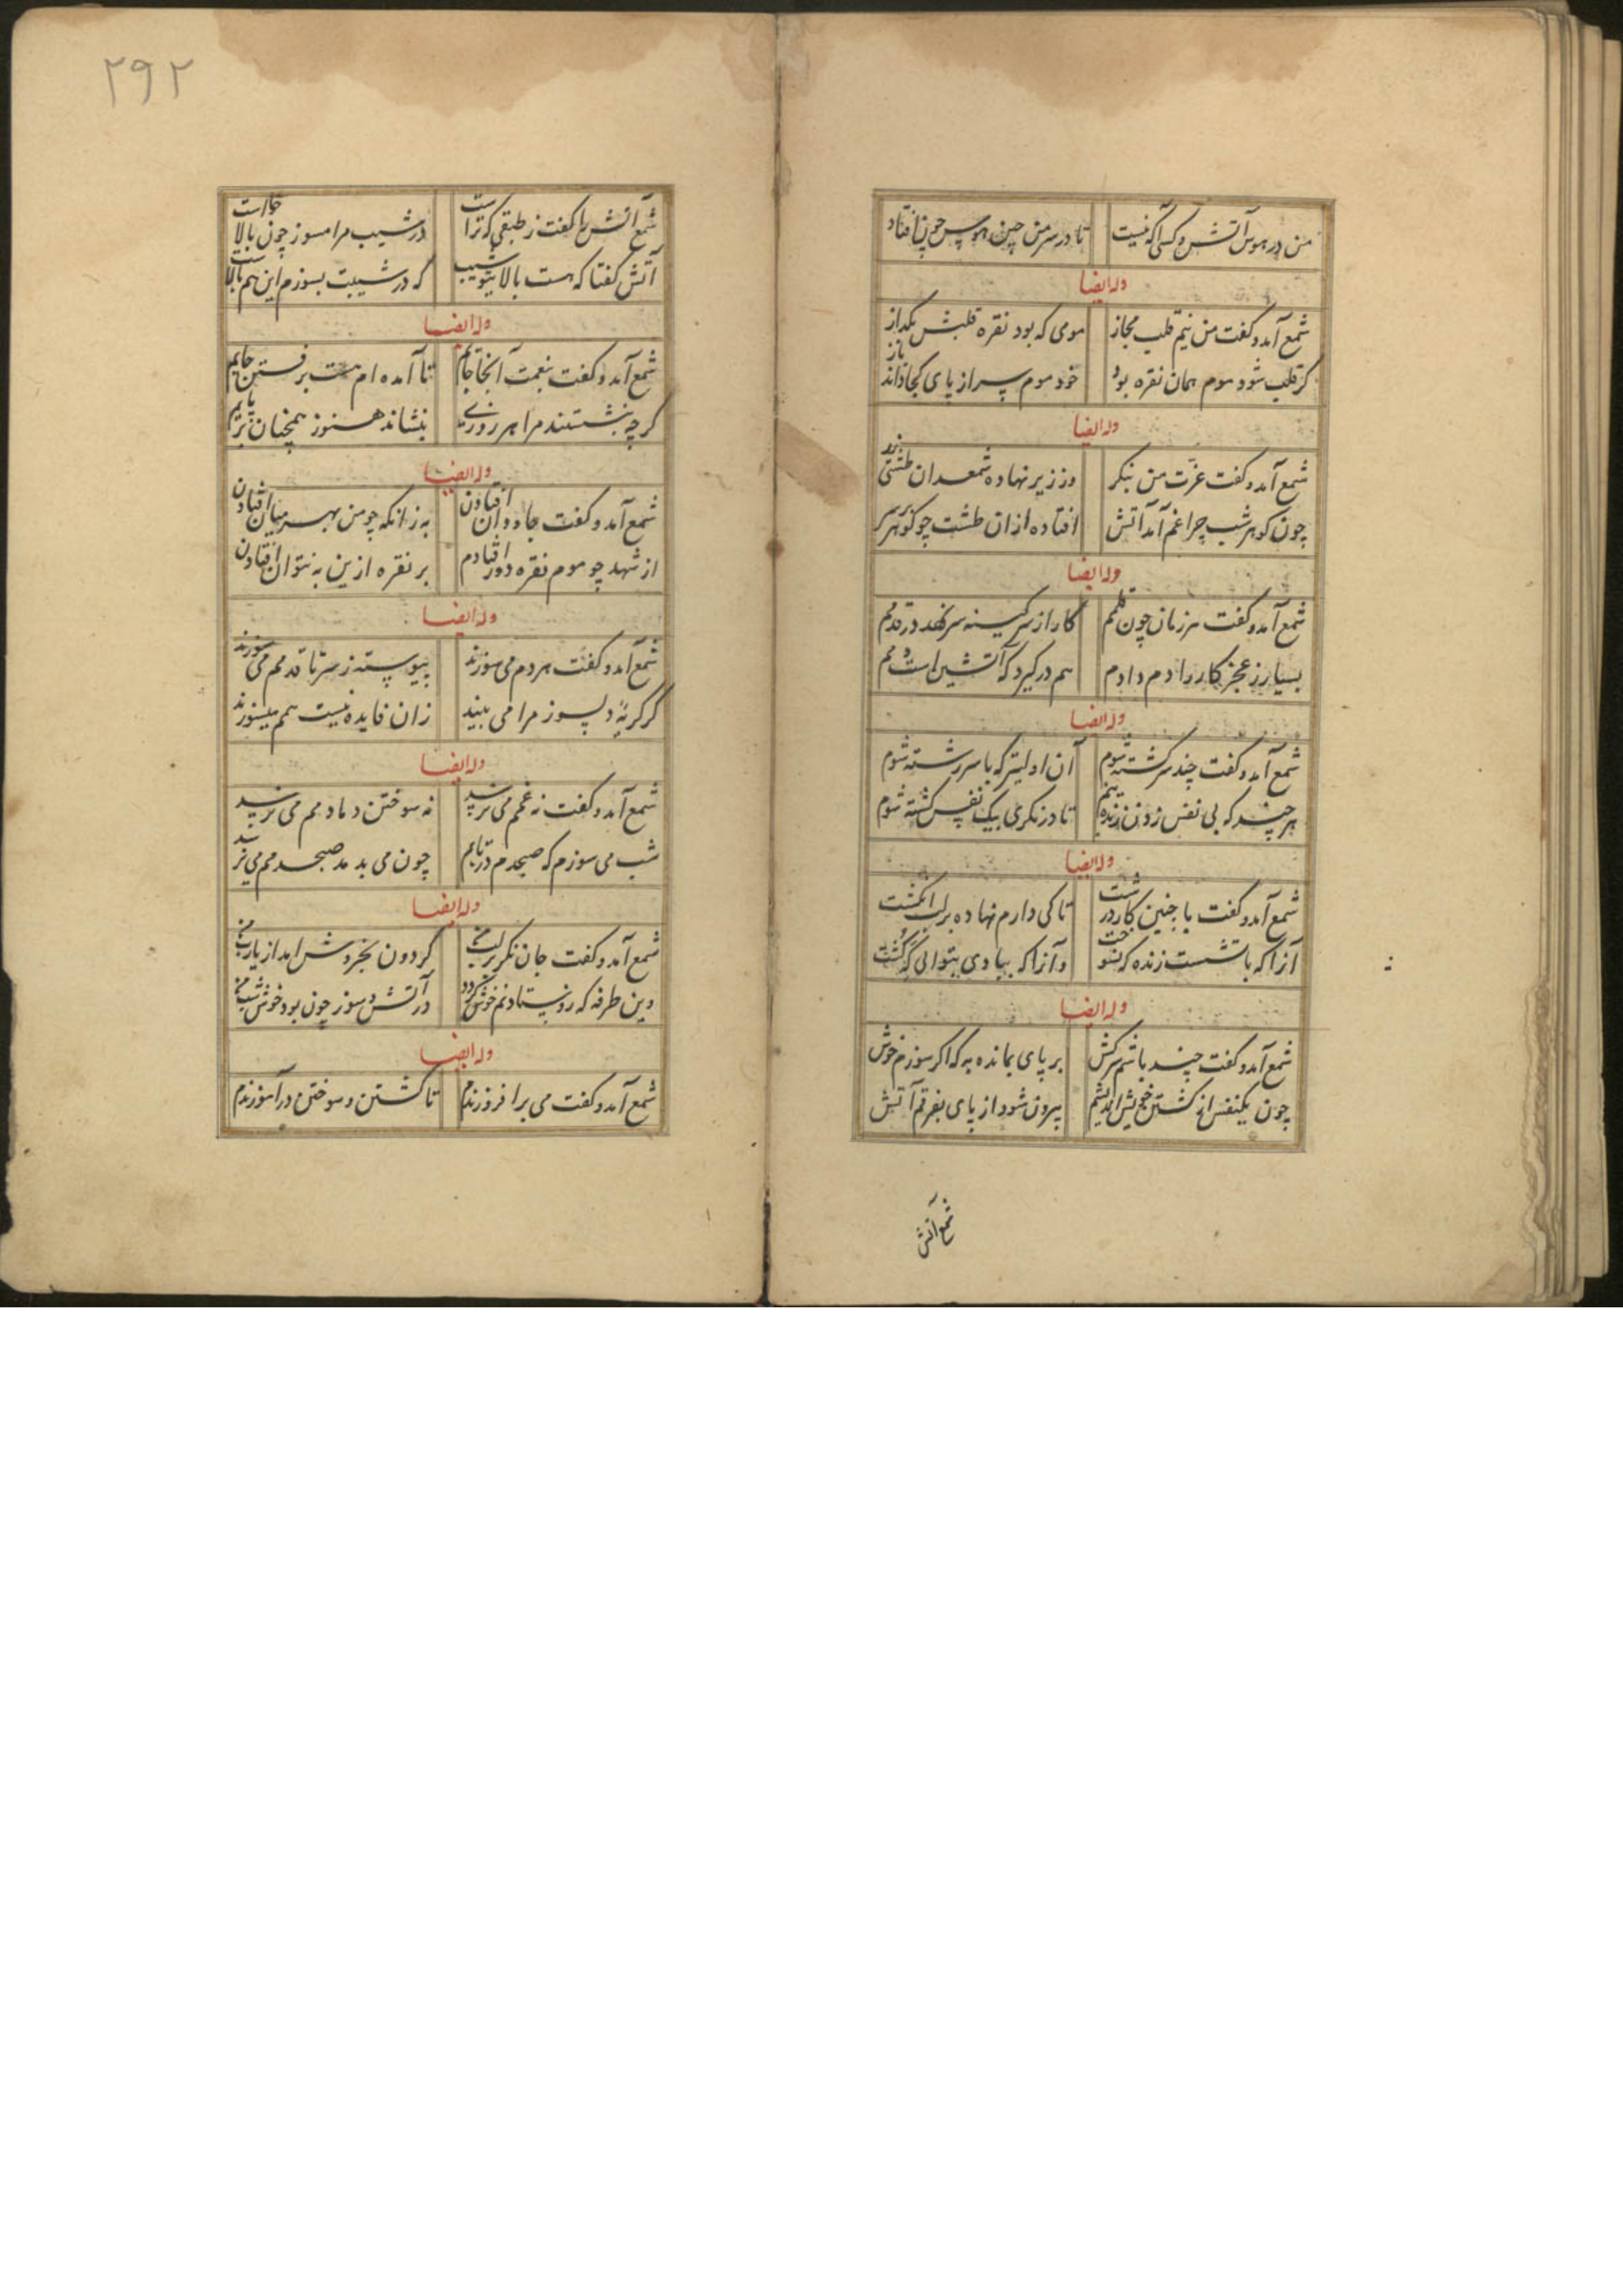 من در هوس آتش و کس آگه نیست تا در سر من چنین هوس چون افتاد
وله ایضا
شمع آمد و گفت من نیم قلب مجاز مومی که بود نقره قلبش بگداز
گر قلب شود موم همان نقره بود خود موم پس از پای کجا داند باز
وله ایضا
شمع آمد و گفت عزت من بنگر وز زیر نهاده شمعدان طشتی زر
چون گوهر شب چراغم آمد آتش افتاده ازان طشت چو گوهر بر سر
وله ایضا
شمع آمد و گفت هر زمان چون قلمم کار از سر کینه سر نهد در قدمم
بسیار ز عجز کار را دم دادم هم درگیرد که آتشین است دمم
وله ایضا
شمع آمد و گفت چند سرگشته شوم آن اولیتر که با سر رشته شوم
هر چند که بی نفس زدن زنده نیم تا در نگری بیک نفس کشته شوم
وله ایضا
شمع آمد و گفت با چنین کار درشت تا کی دارم نهاده بر لب انگشت
آنرا که باتشست زنده که بسوخت وآنرا که ببادی بتوانی کشت که کشت
وله ایضا
شمع آمد و گفت چند باشم سرکش بر پای بمانده به که اگر سوزم خوش
چون یکنفس از کشتن خویش اندیشم بیرون شود از پای بفرقم آتش
شمع آتش
۲۹۲
شمع آتش را گفت ز طبقی که تراست در شیب مرا مسوز چون بالا خواست
آتش گفتا که هست بالا بتو شیب که در شیبت بسوزم این هم بالاست
وله ایضا
شمع آمد و گفت بنعمت آنجا جایم تا آمده ام هست بر فستن جایم
گرچه بنشستند مرا هر روزی بنشاند هنوز همچنان بر پایم
وله ایضا
شمع آمد و گفت جاودان افتادن به زانکه چو من بهر میان افتادن
از شهد چو موم نقره دور افتادم بر نقره ازین به نتوان افتادن
وله ایضا
شمع آمد و گفت هر دم می سوزند پیوسته ز سر تا قدمم می سوزند
گر گریهٔ دلسوز مرا می بینند زان فایده نیست همم میسوزند
وله ایضا
شمع آمد و گفت نه غمم می ترسد نه سوختن دمادمم می ترسد
شب می سوزم که صبحدم دریابم چون می بدمد صبحدمم می ترسد
وله ایضا
شمع آمد و گفت جان نگر بر لب من گردون بخروش امد از یارب من
وین طرفه که روز نیستادنم خوش گردد در آتش و سوز چون بود خوش شب من
وله ایضا
شمع آمد و گفت می برافروزندم تا کشتن و سوختن درآموزندم